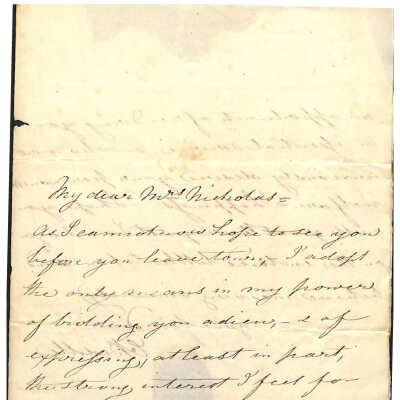 My dear Mrs Nicholas =
As I cannot now hope to see you
before you leave town, - I adopt
the only means in my power
of bidding you adieu, - & of
expressing, at least in part,
the strong interest I feel for